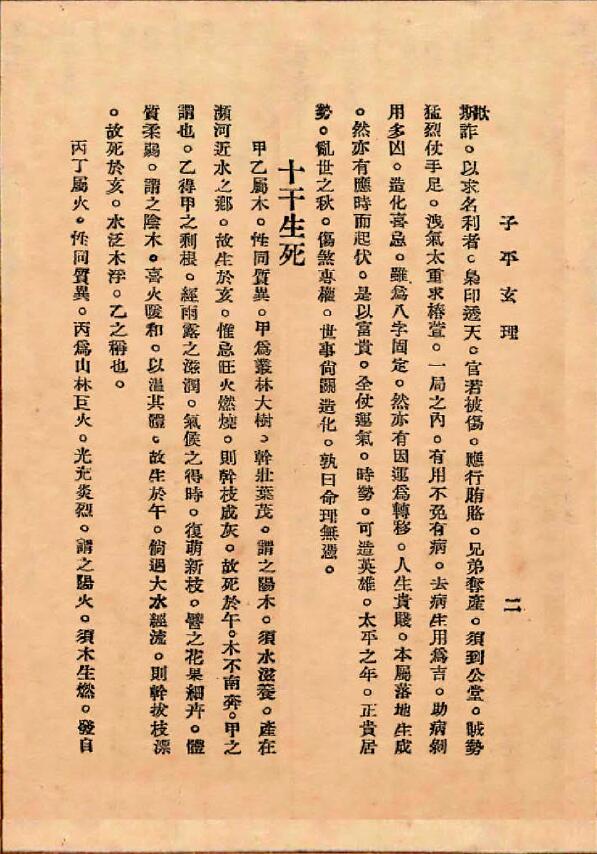 子平玄理 二
欺詐。以求名利者。梟印透天。官若被傷。應行賄賂。兄弟奪產。須到公堂。賊勢
猛烈仗手足。洩氣太重求椿萱。一局之內。有用不免有病。去病生用爲吉。助病剝
用多凶。造化喜忌。雖爲八字固定。然亦有因運爲轉移。人生貴賤。本屬落地生成
。然亦有應時而起伏。是以富貴。全仗運氣。時勢。可造英雄。太平之年。正貴居
勢。亂世之秋。傷煞專權。世事尙關造化。孰曰命理無憑。
十干生死
甲乙屬木。性同質異。甲爲叢林大樹。幹壯葉茂。謂之陽木。須水滋養。產在
瀕河近水之鄉。故生於亥。惟忌旺火燃燒。則幹枝成灰。故死於午。木不南奔。甲之
謂也。乙得甲之剩根。經雨露之滋潤。氣候之得時。復萌新枝。譬之花果細卉。體
質柔弱。謂之陰木。喜火暖和。以溫其體。故生於午。倘遇大水經流。則幹拔枝漂
。故死於亥。水泛木浮。乙之稱也。
丙丁屬火。性同質異。丙爲山林巨火。光充炎烈。謂之陽火。須木生燃。發自